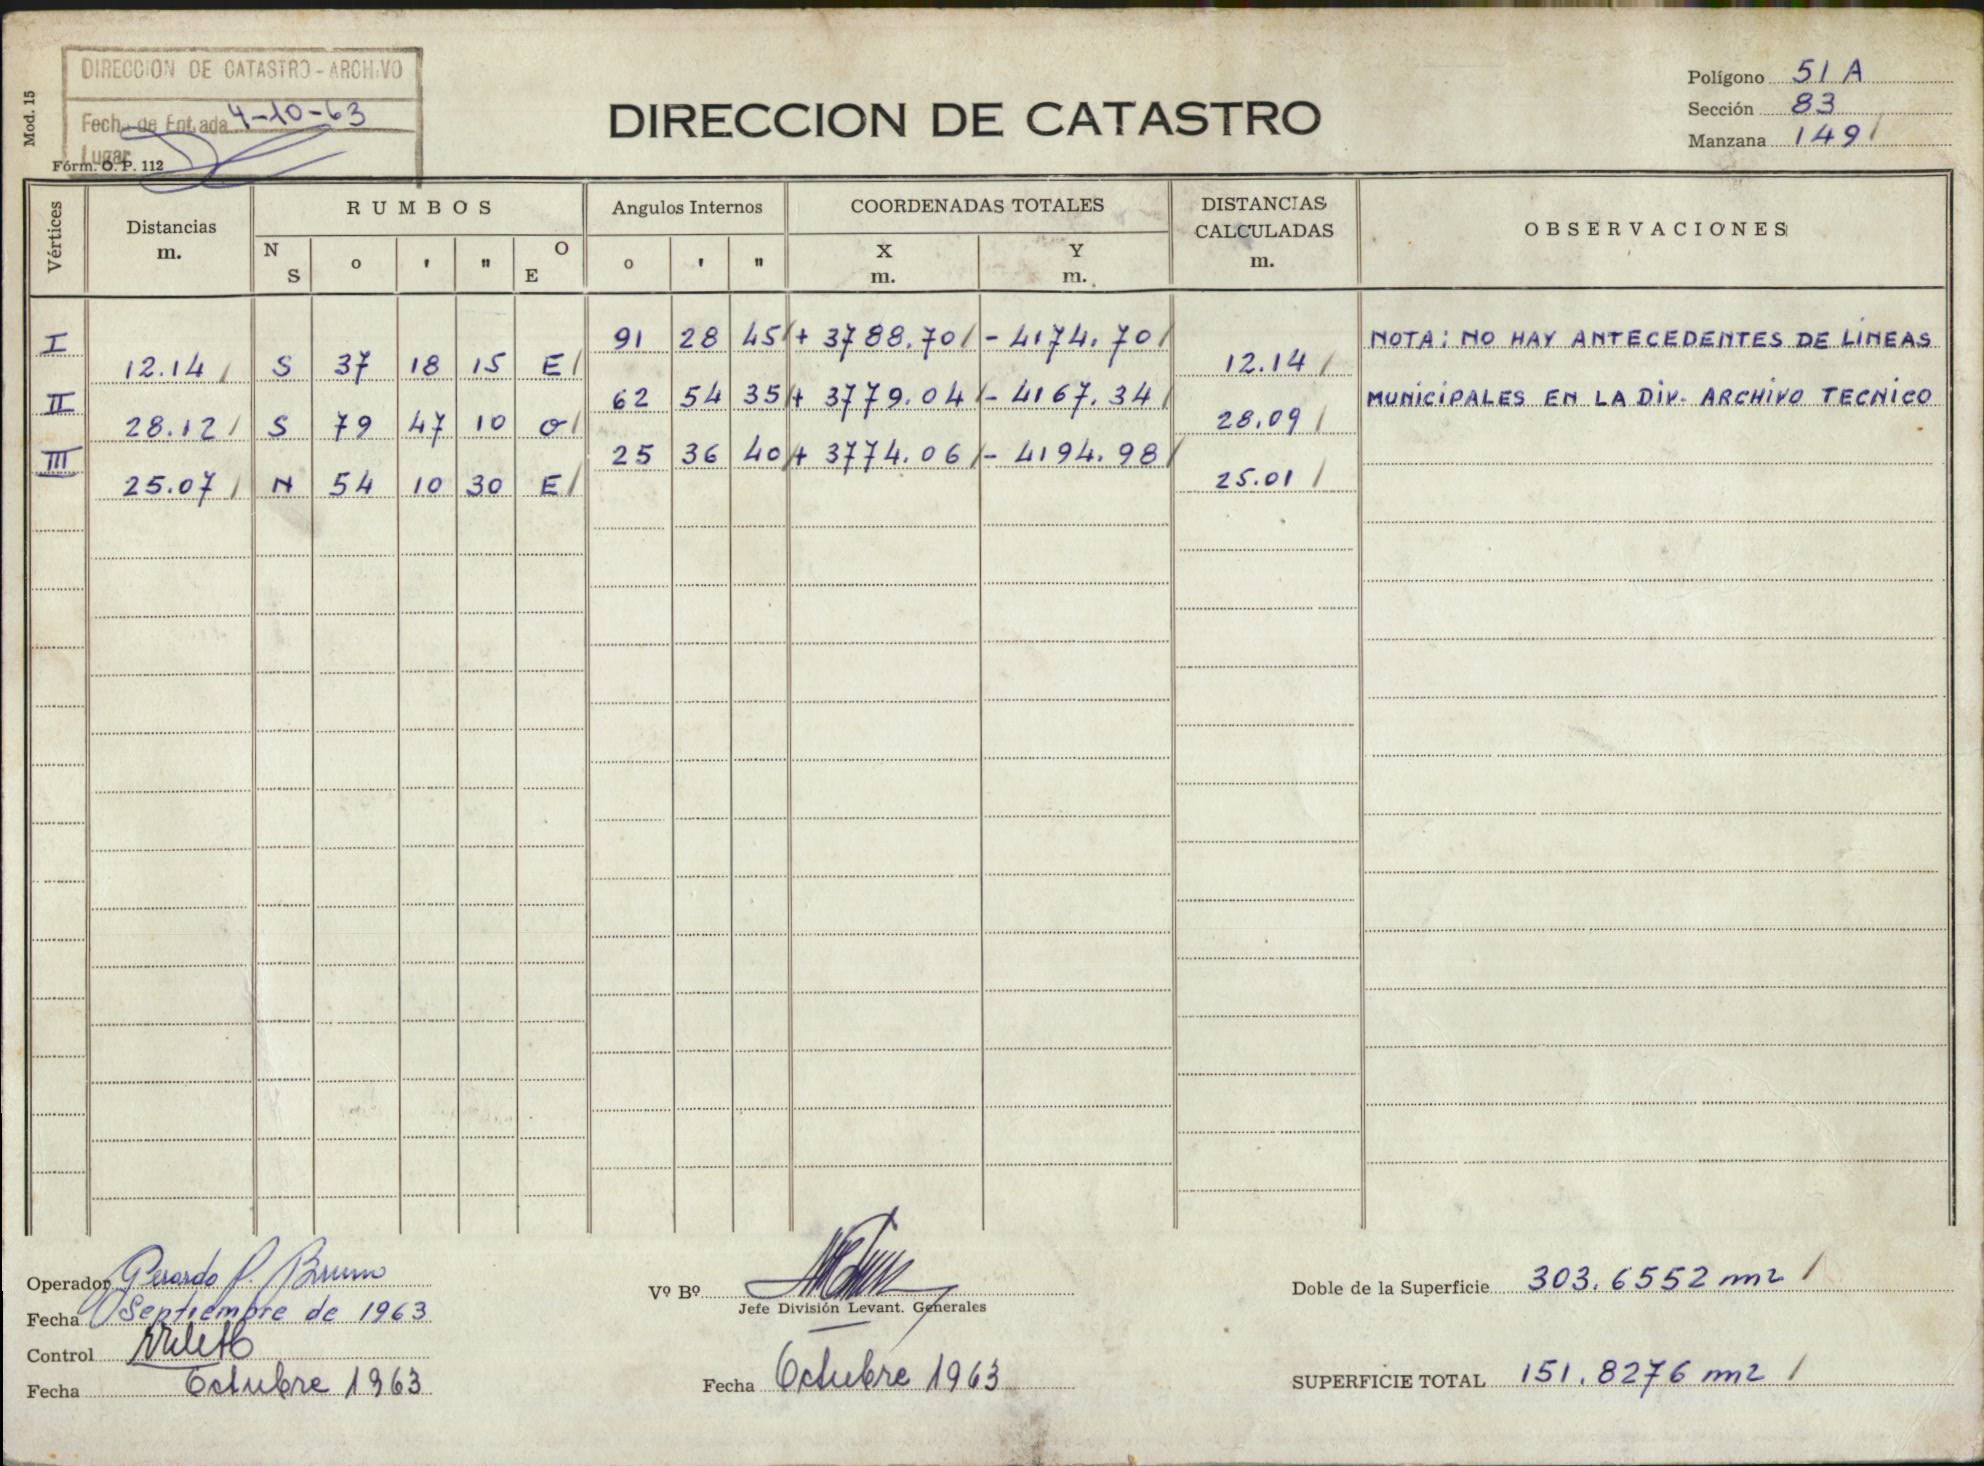 DIRECCION DE CATASTRO - ARCHIVO
Fecha de Entrada 4-10-63
Lugar
Mod. 15
Fórm. O. P. 112
DIRECCION DE CATASTRO
Polígono 51 A
Sección 83
Manzana 149 /
Vértices
Distancias
m.
RUMBOS
N S ° ' " O E
Angulos Internos
° ' "
COORDENADAS TOTALES
X
m.
Y
m.
DISTANCIAS
CALCULADAS
m.
OBSERVACIONES
I 91 28 45 / + 3788.70 / - 4174.70 / NOTA: NO HAY ANTECEDENTES DE LINEAS
12.14 / S 37 18 15 E / 12.14 /
II 62 54 35 / + 3779.04 / - 4167.34 / MUNICIPALES EN LA DIV. ARCHIVO TECNICO
28.12 / S 79 47 10 O / 28.09 /
III 25 36 40 / + 3774.06 / - 4194.98 /
25.07 / N 54 10 30 E / 25.01 /
Operador Gerardo P. Bruno
Fecha Septiembre de 1963
Control
Fecha Octubre 1963
Vº Bº
Jefe División Levant. Generales
Fecha Octubre 1963
Doble de la Superficie 303.6552 m2 /
SUPERFICIE TOTAL 151.8276 m2 /